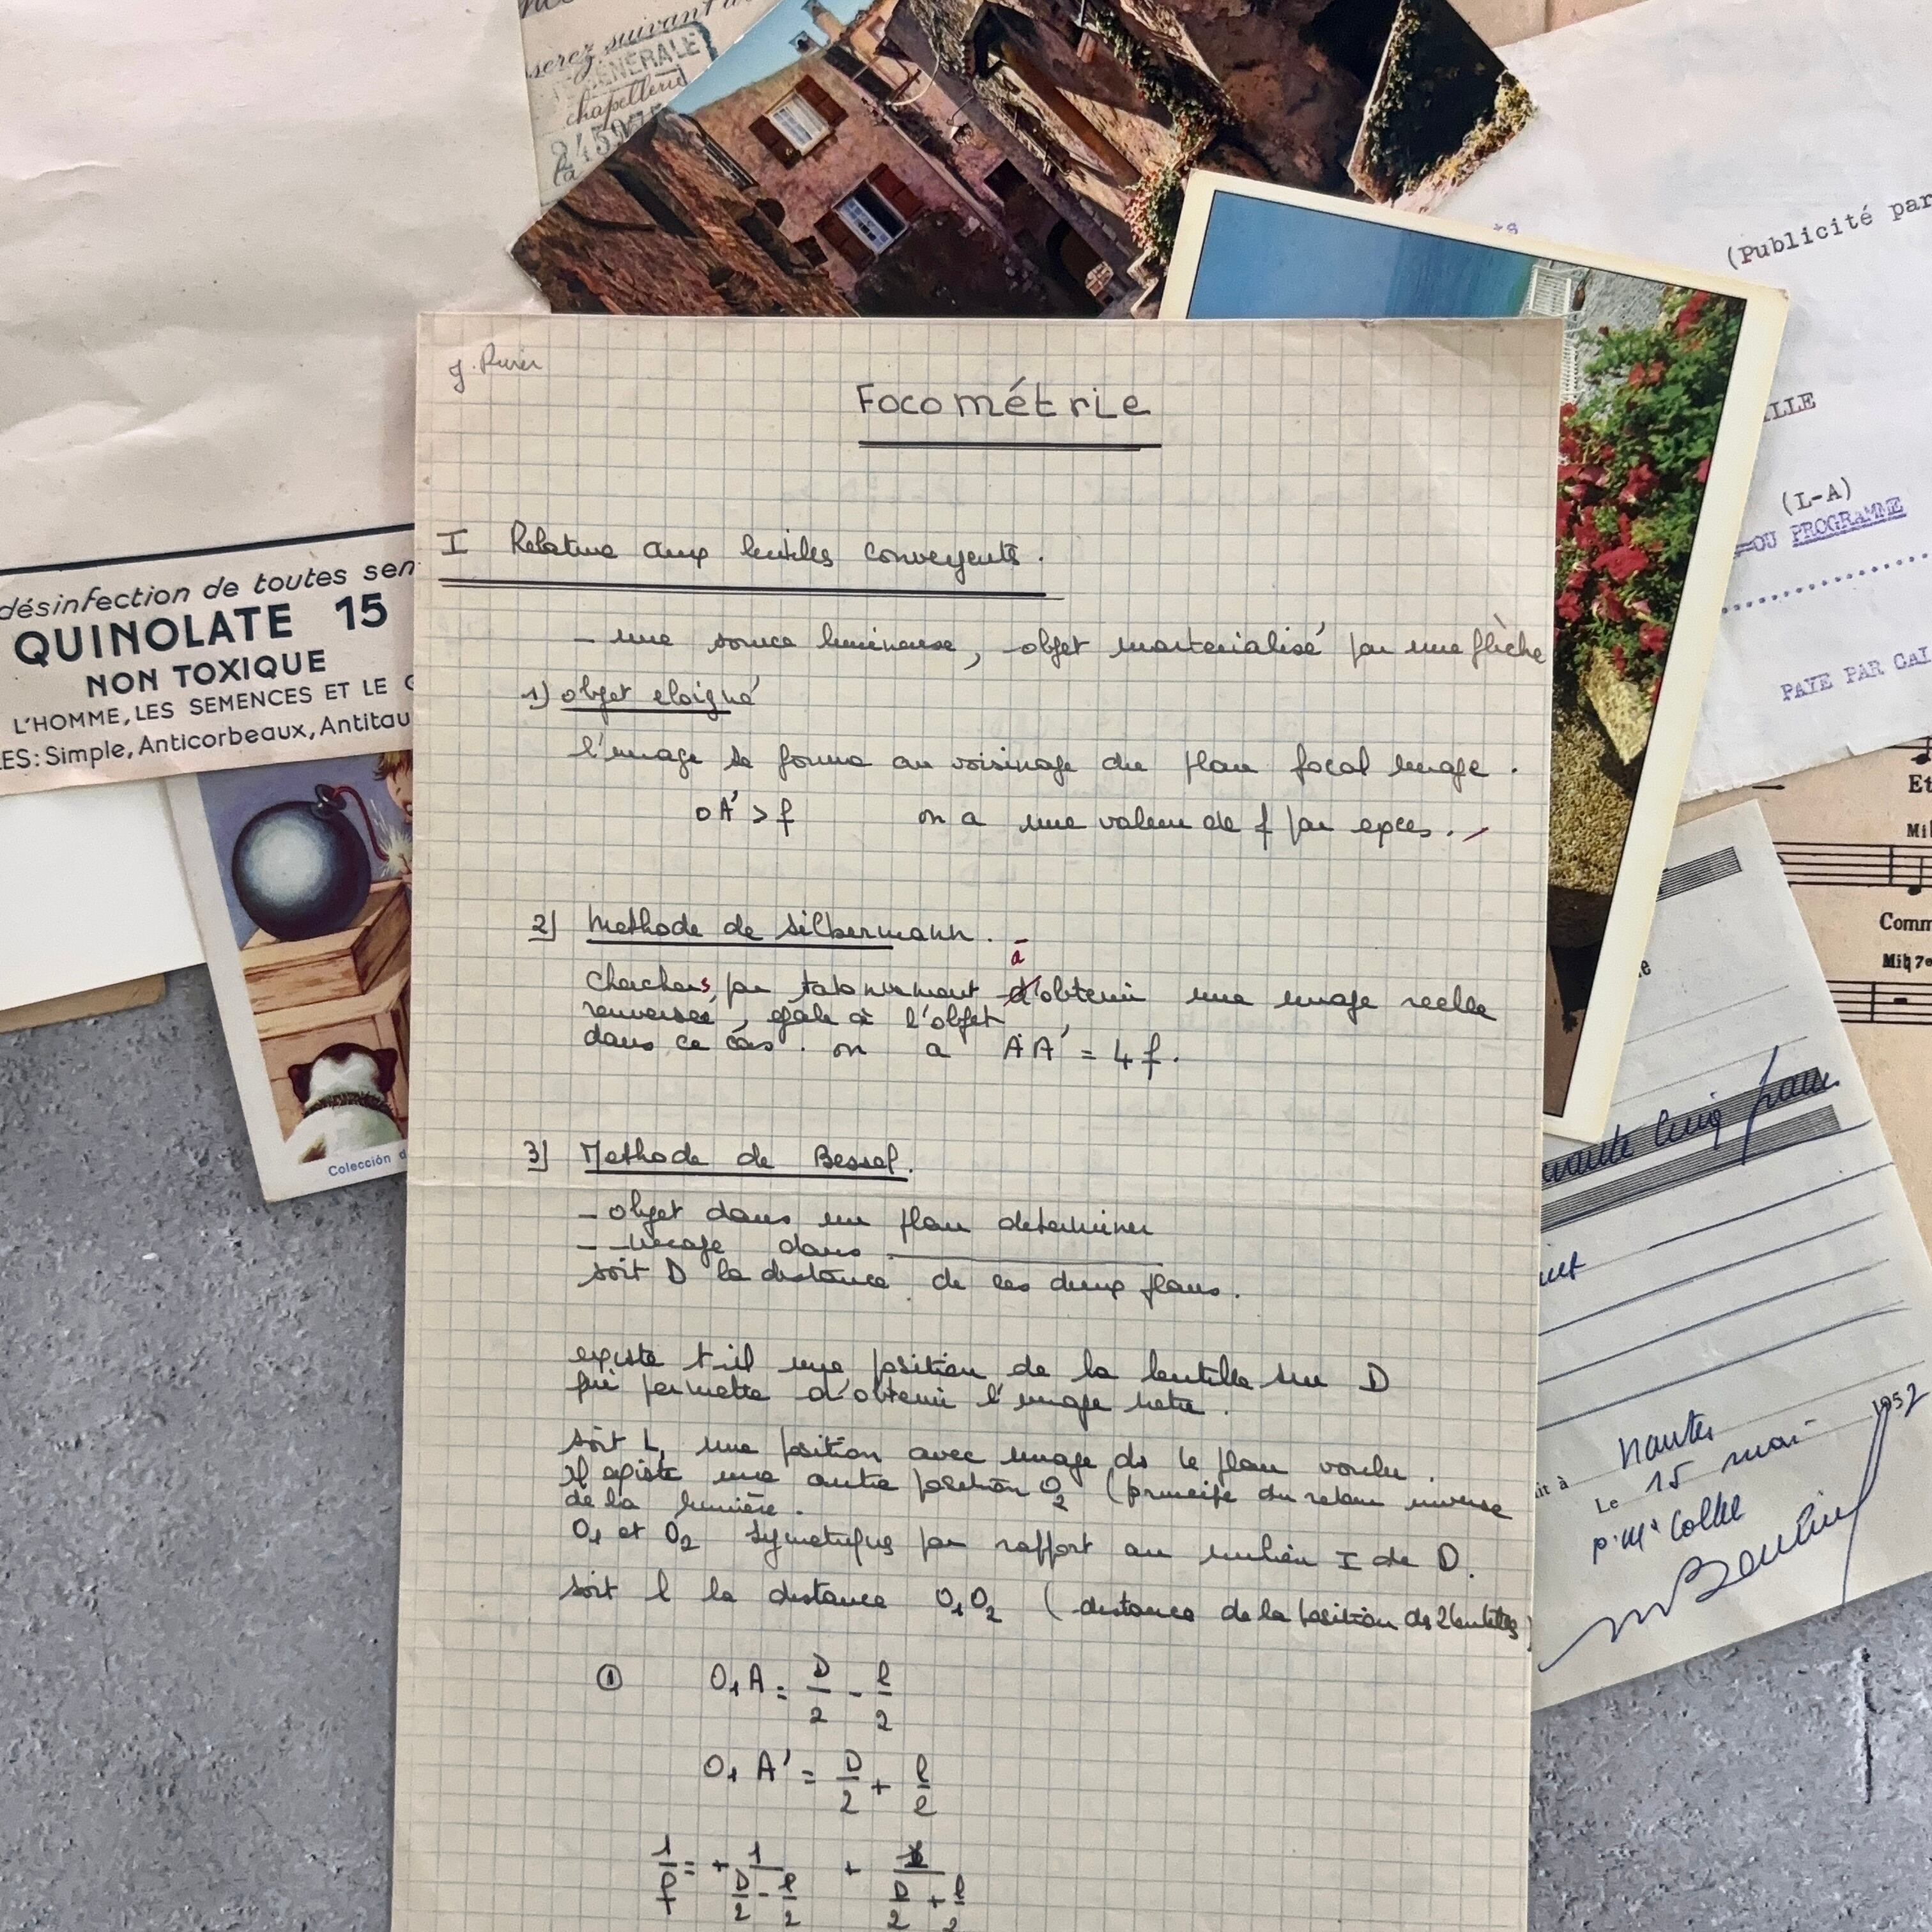 serez suivant
GÉNÉRALE
chapellerie
(Publicité par
(L-A)
OU PROGRAMME
PAYE PAR CAI
désinfection de toutes sem
QUINOLATE 15
NON TOXIQUE
L'HOMME, LES SEMENCES ET LE G
ES: Simple, Anticorbeaux, Antitau
Colección d
Focométrie
I Relative aux lentilles convergents.
- une source lumineuse, objet materialisé par une flèche
1) objet eloigné
l'image se forme au voisinage du plan focal image.
OA' > f on a une valeur de f par exces.
2) Methode de Silbermann.
à
cherchons par tatonnement d'obtenir une image reelle
renversée, égale à l'objet
dans ce cas. on a AA' = 4 f.
3) Methode de Bessel.
- objet dans un plan determiner
- image dans
soit D la distance de ces deux plans.
existe t-il une position de la lentille sur D
qui permette d'obtenir l'image nette.
soit L, une position avec image ds le plan voulu.
Il existe une autre position O2 (principe du retour inverse
de la lumière.
O1 et O2 symetriques par rapport au milieu I de D.
soit l la distance O1O2 (distance de la position des 2 lentilles)
① O1A = D/2 - l/2
O1A' = D/2 + l/2
1/f = + 1/(D/2 - l/2) + 1/(D/2 + l/2)
Et
Comm
Mi♮7e
1957
Nantes
it à
Le 15 mai